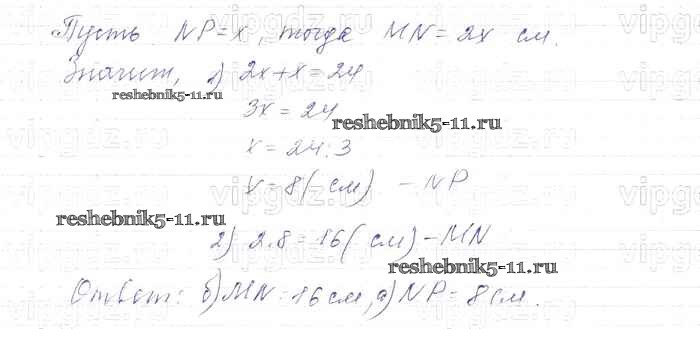 Пусть NP=x, тогда MN=2x см.
Значит, 1) 2x+x=24
reshebnik5-11.ru
3x=24
reshebnik5-11.ru
x=24:3
x=8(см) - NP
reshebnik5-11.ru
2) 2·8=16(см)-MN
reshebnik5-11.ru
Ответ: б) MN=16см, а) NP=8см.